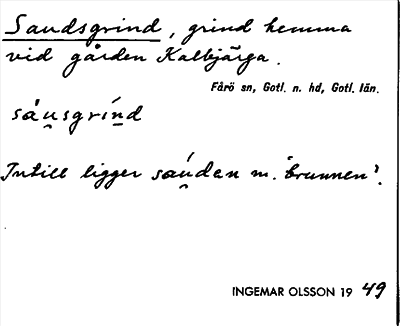 Saudsgrind, grind hemma
vid gården Kalbjärga.
Fårö sn, Gotl. n. hd, Gotl. län.
såu̯sgrín̯d
Intill ligger sáu̯den m. "brunnen".
INGEMAR OLSSON 19 49